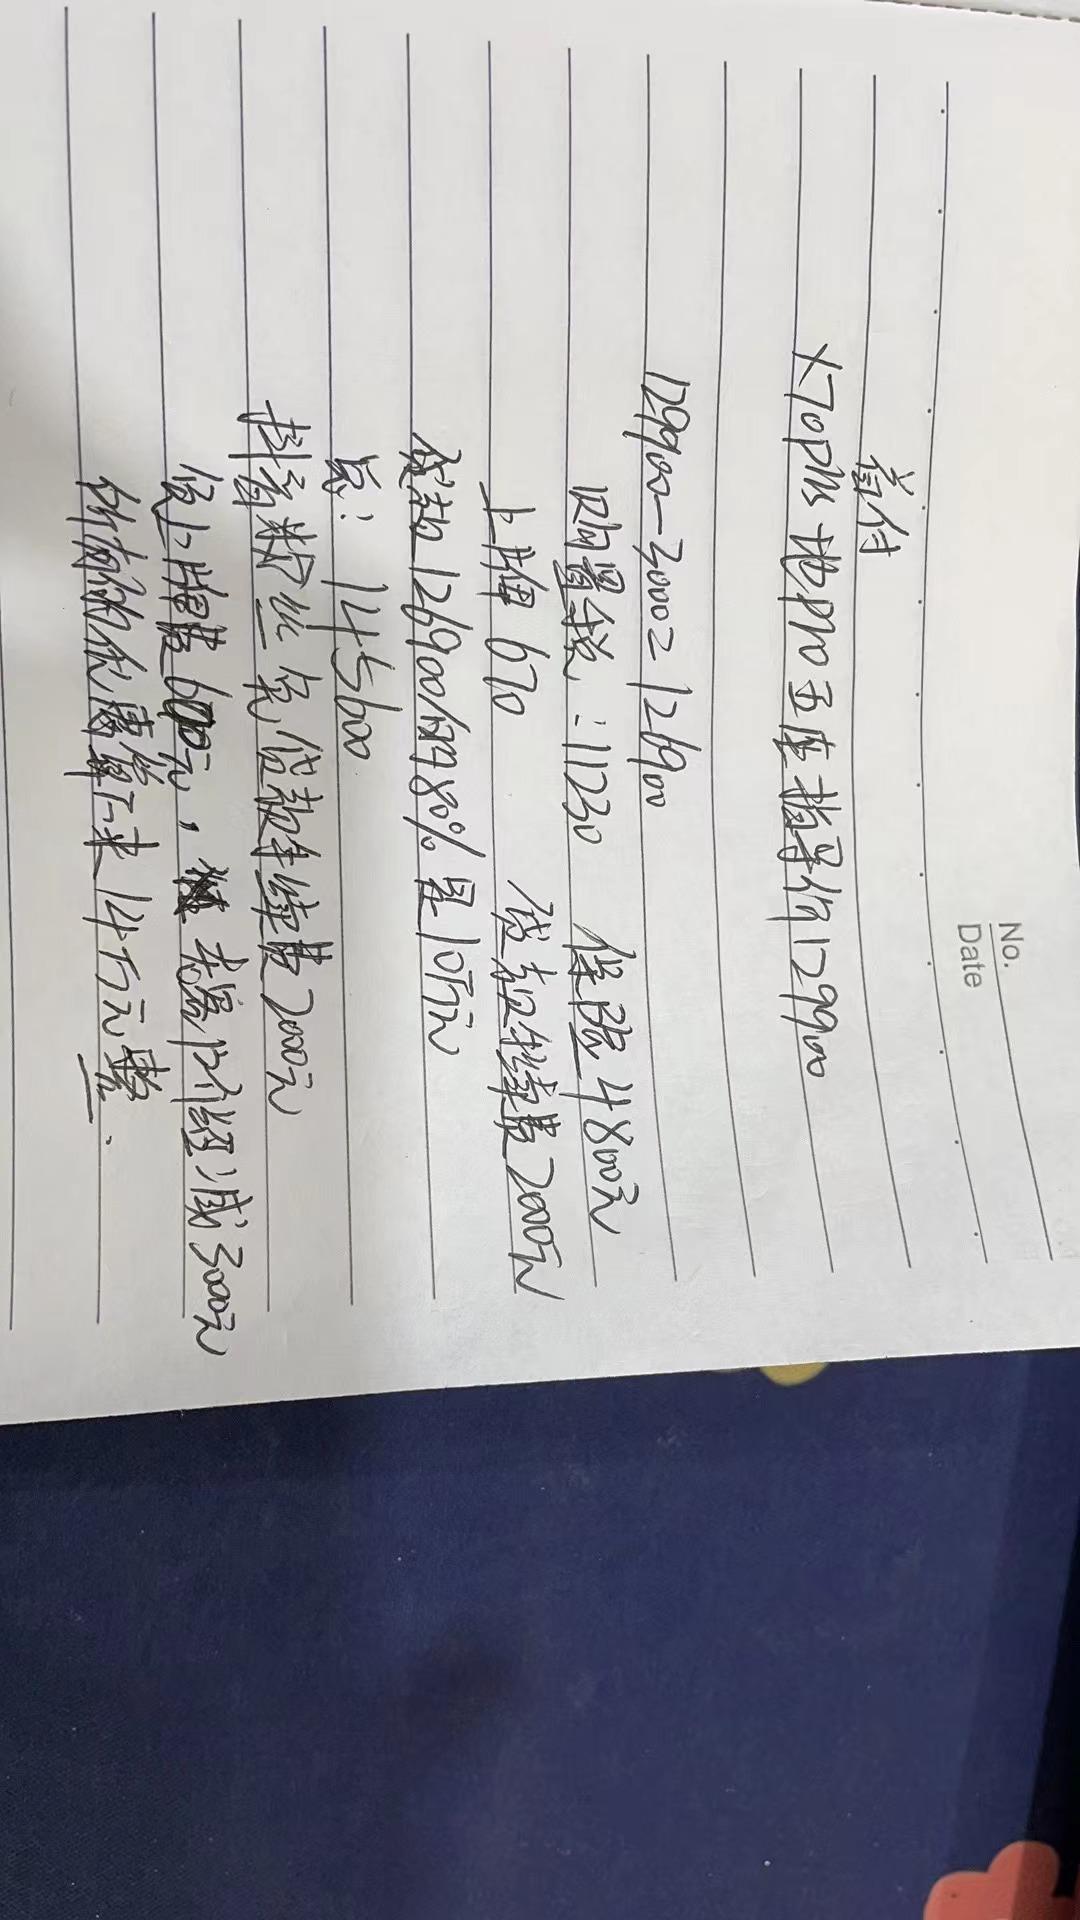 No.
Date
首付
X70plus 地pro 五座指导价129900
129900-3000=126900
购置税：11230 保险4800元
上牌 670 贷款手续费2000元
贷款126900/的80%是10万元
总：145600
抖音数立 免贷款手续费2000元
免上牌费600元，老客户介绍减3000元
所有的优惠算下来14万元整.